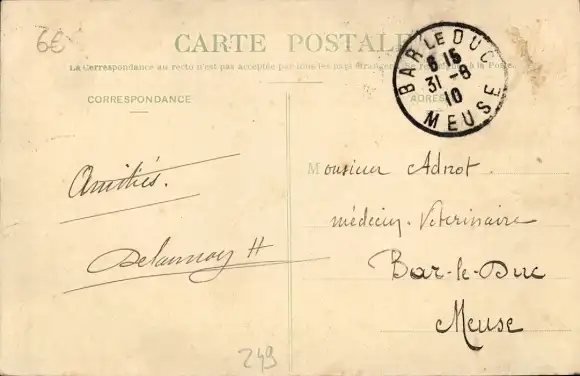 6€
CARTE POSTALE
La Correspondance au recto n'est pas acceptée par tous les pays étrangers à la Poste.
BAR LE DUC
6 15
31 - 8
10
MEUSE
CORRESPONDANCE
ADRESSE
Amitiés.
Delaunoy H
Monsieur Adnot
médecin-Vétérinaire
Bar-le-Duc
Meuse
249